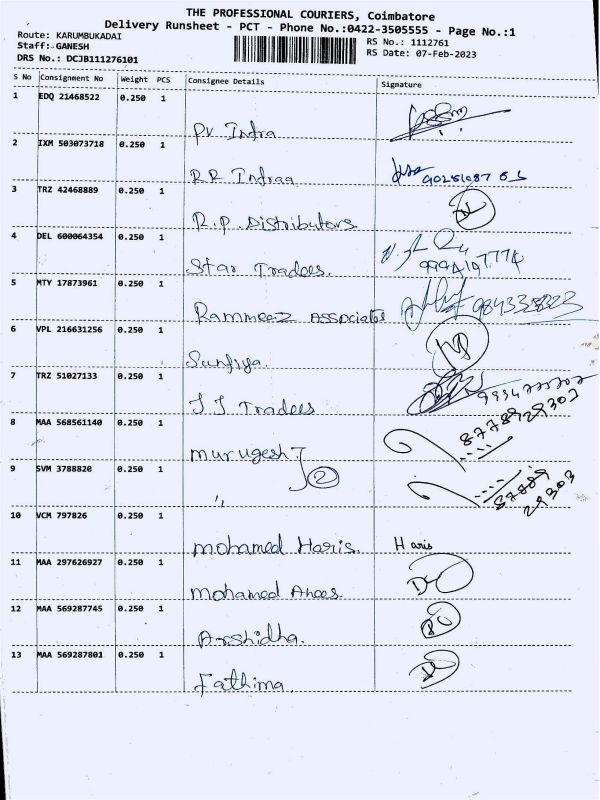 THE PROFESSIONAL COURIERS, Coimbatore
Delivery Runsheet - PCT - Phone No.:0422-3505555 - Page No.:1
Route: KARUMBUKADAI
RS No.: 1112761
Staff: GANESH
RS Date: 07-Feb-2023
DRS No.: DCJB111276101
S No Consignment No Weight PCS Consignee Details Signature
1 EDQ 21468522 0.250 1
PV Infra
2 IXM 503073718 0.250 1
RR Infraa
3 TRZ 42468889 0.250 1
R.P. Distributors
4 DEL 600064354 0.250 1
Star Tradees.
5 MTY 17873961 0.250 1
Rammeez Associates
6 VPL 216631256 0.250 1
7 TRZ 51027133 0.250 1
JJ Tradees
8 MAA 568561140 0.250 1 8778929303
murugesh.J
9 SVM 3788820 0.250 1 87789
2 29303
"
10 VCM 797826 0.250 1
mohamed Haris. Haris
11 MAA 297626927 0.250 1
mohamed Anees.
12 MAA 569287745 0.250 1
Arshidha.
13 MAA 569287801 0.250 1
Fathima.